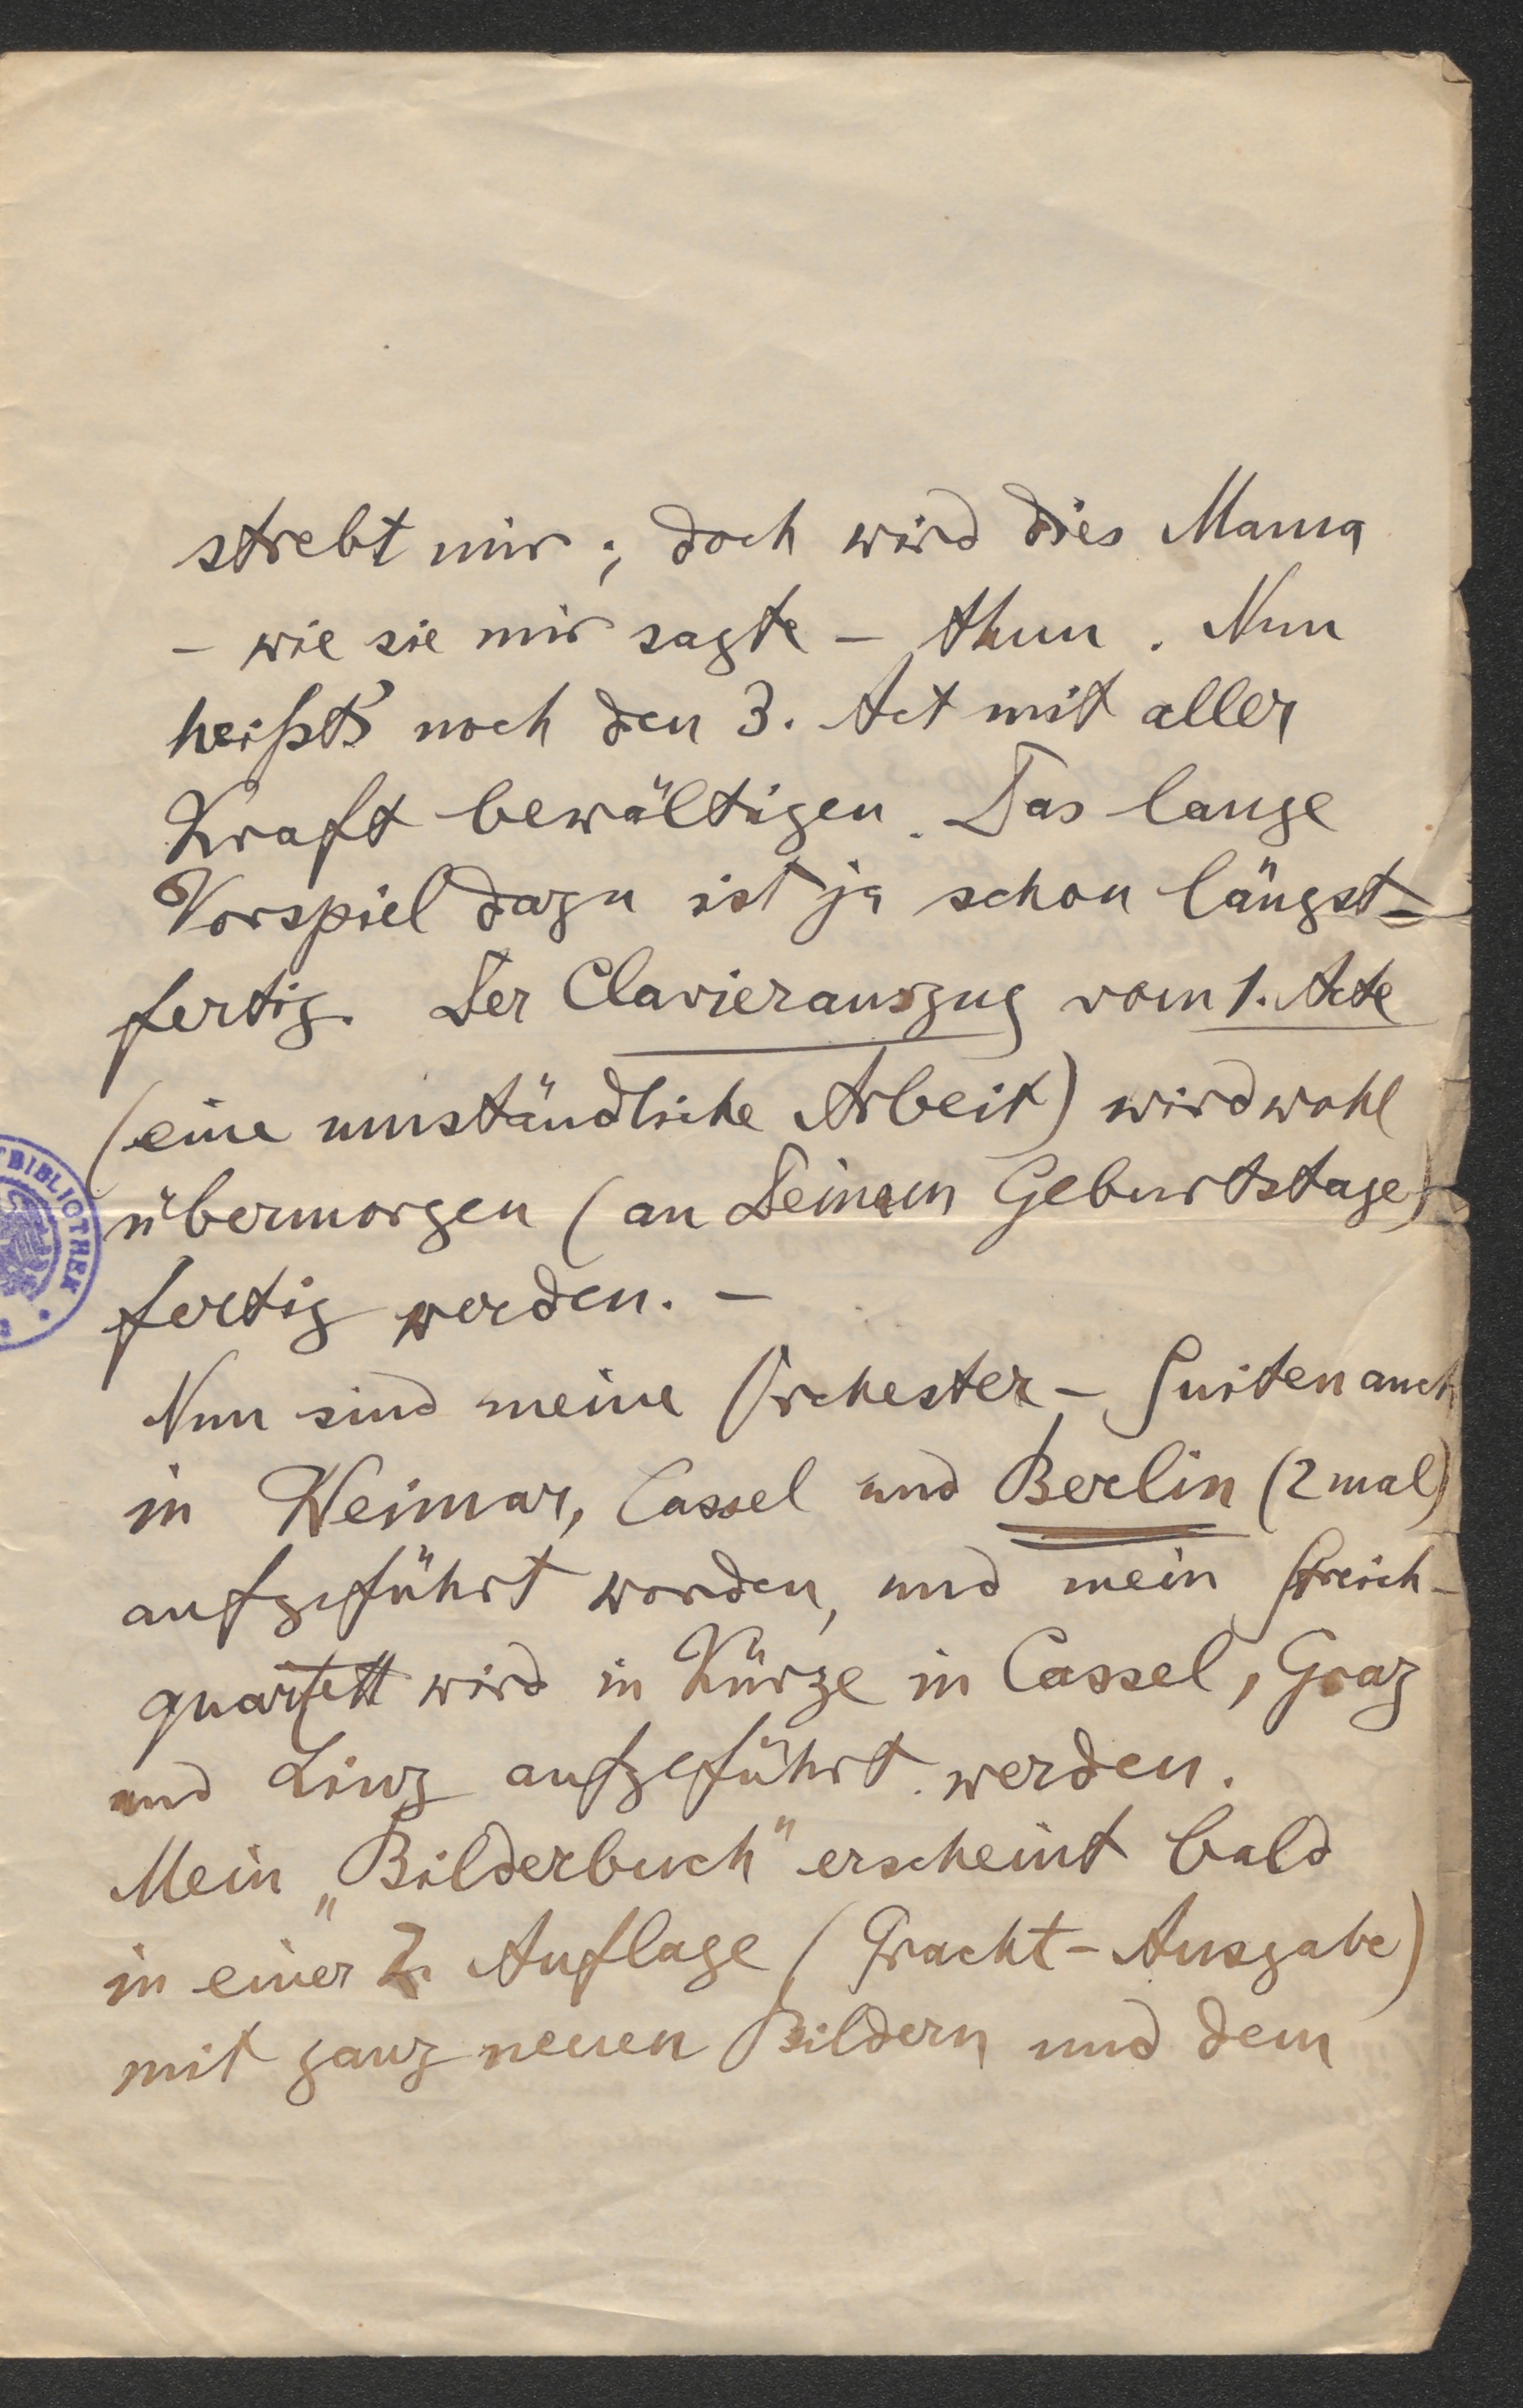 strebt mir; doch wird dies Mama
– wie sie mir sagte – thun. Nun
heißt's noch den 3. Act mit aller
Kraft bewältigen. Das lange
Vorspiel dazu ist ja schon längst
fertig. Der Clavierauszug vom 1. Acte
(eine umständliche Arbeit) wird wohl
übermorgen (an Deinem Geburtstage)
fertig werden. –
Nun sind meine Orchester-Suiten auch
in Weimar, Cassel und Berlin (2 mal)
aufgeführt worden, und mein Streich-
quartett wird in Kürze in Cassel, Graz
und Linz aufgeführt werden.
Mein „Bilderbuch" erscheint bald
in einer 2. Auflage (Pracht-Ausgabe)
mit ganz neuen Bildern und dem
BIBLIOTHEK